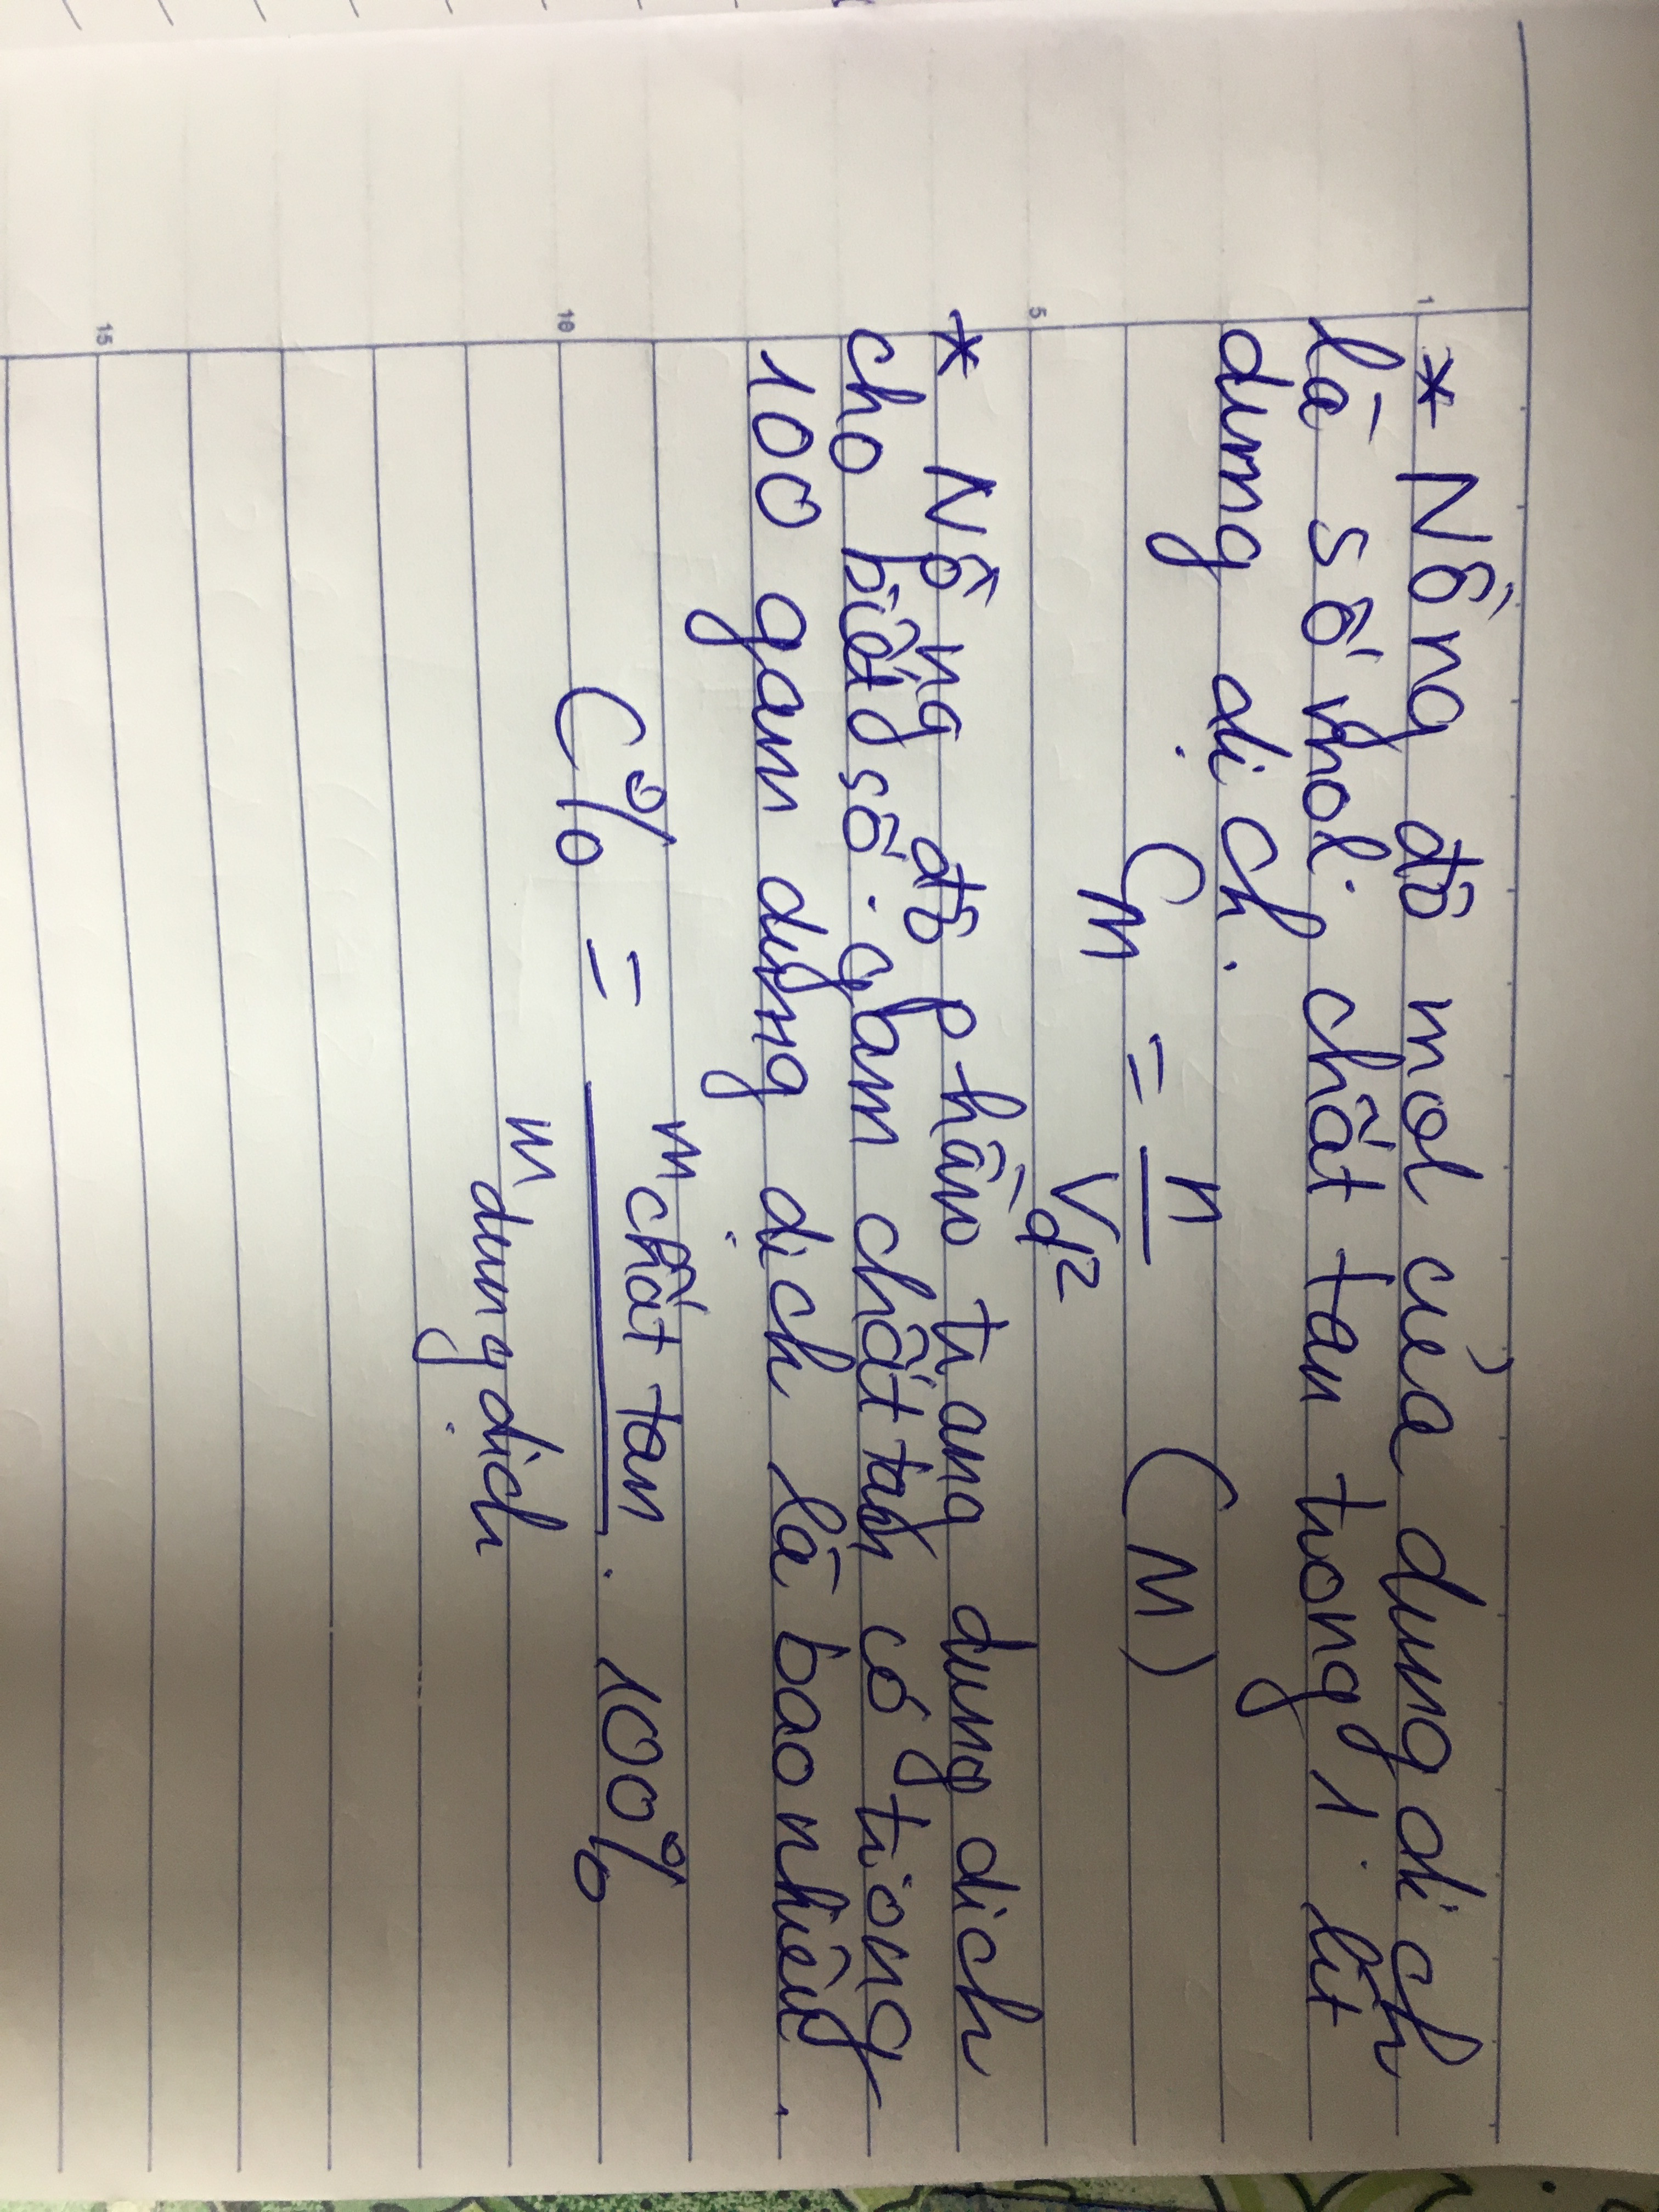 * Nồng độ mol của dung dịch
là số mol chất tan trong 1 lít
dung dịch.
CM = n / Vd² (M)
* Nồng độ phần trăng dung dịch
cho biết số gam chất tan có trong
100 gam dung dịch là bao nhiêu.
C% = m chất tan / m dung dịch . 100%
1
5
10
15